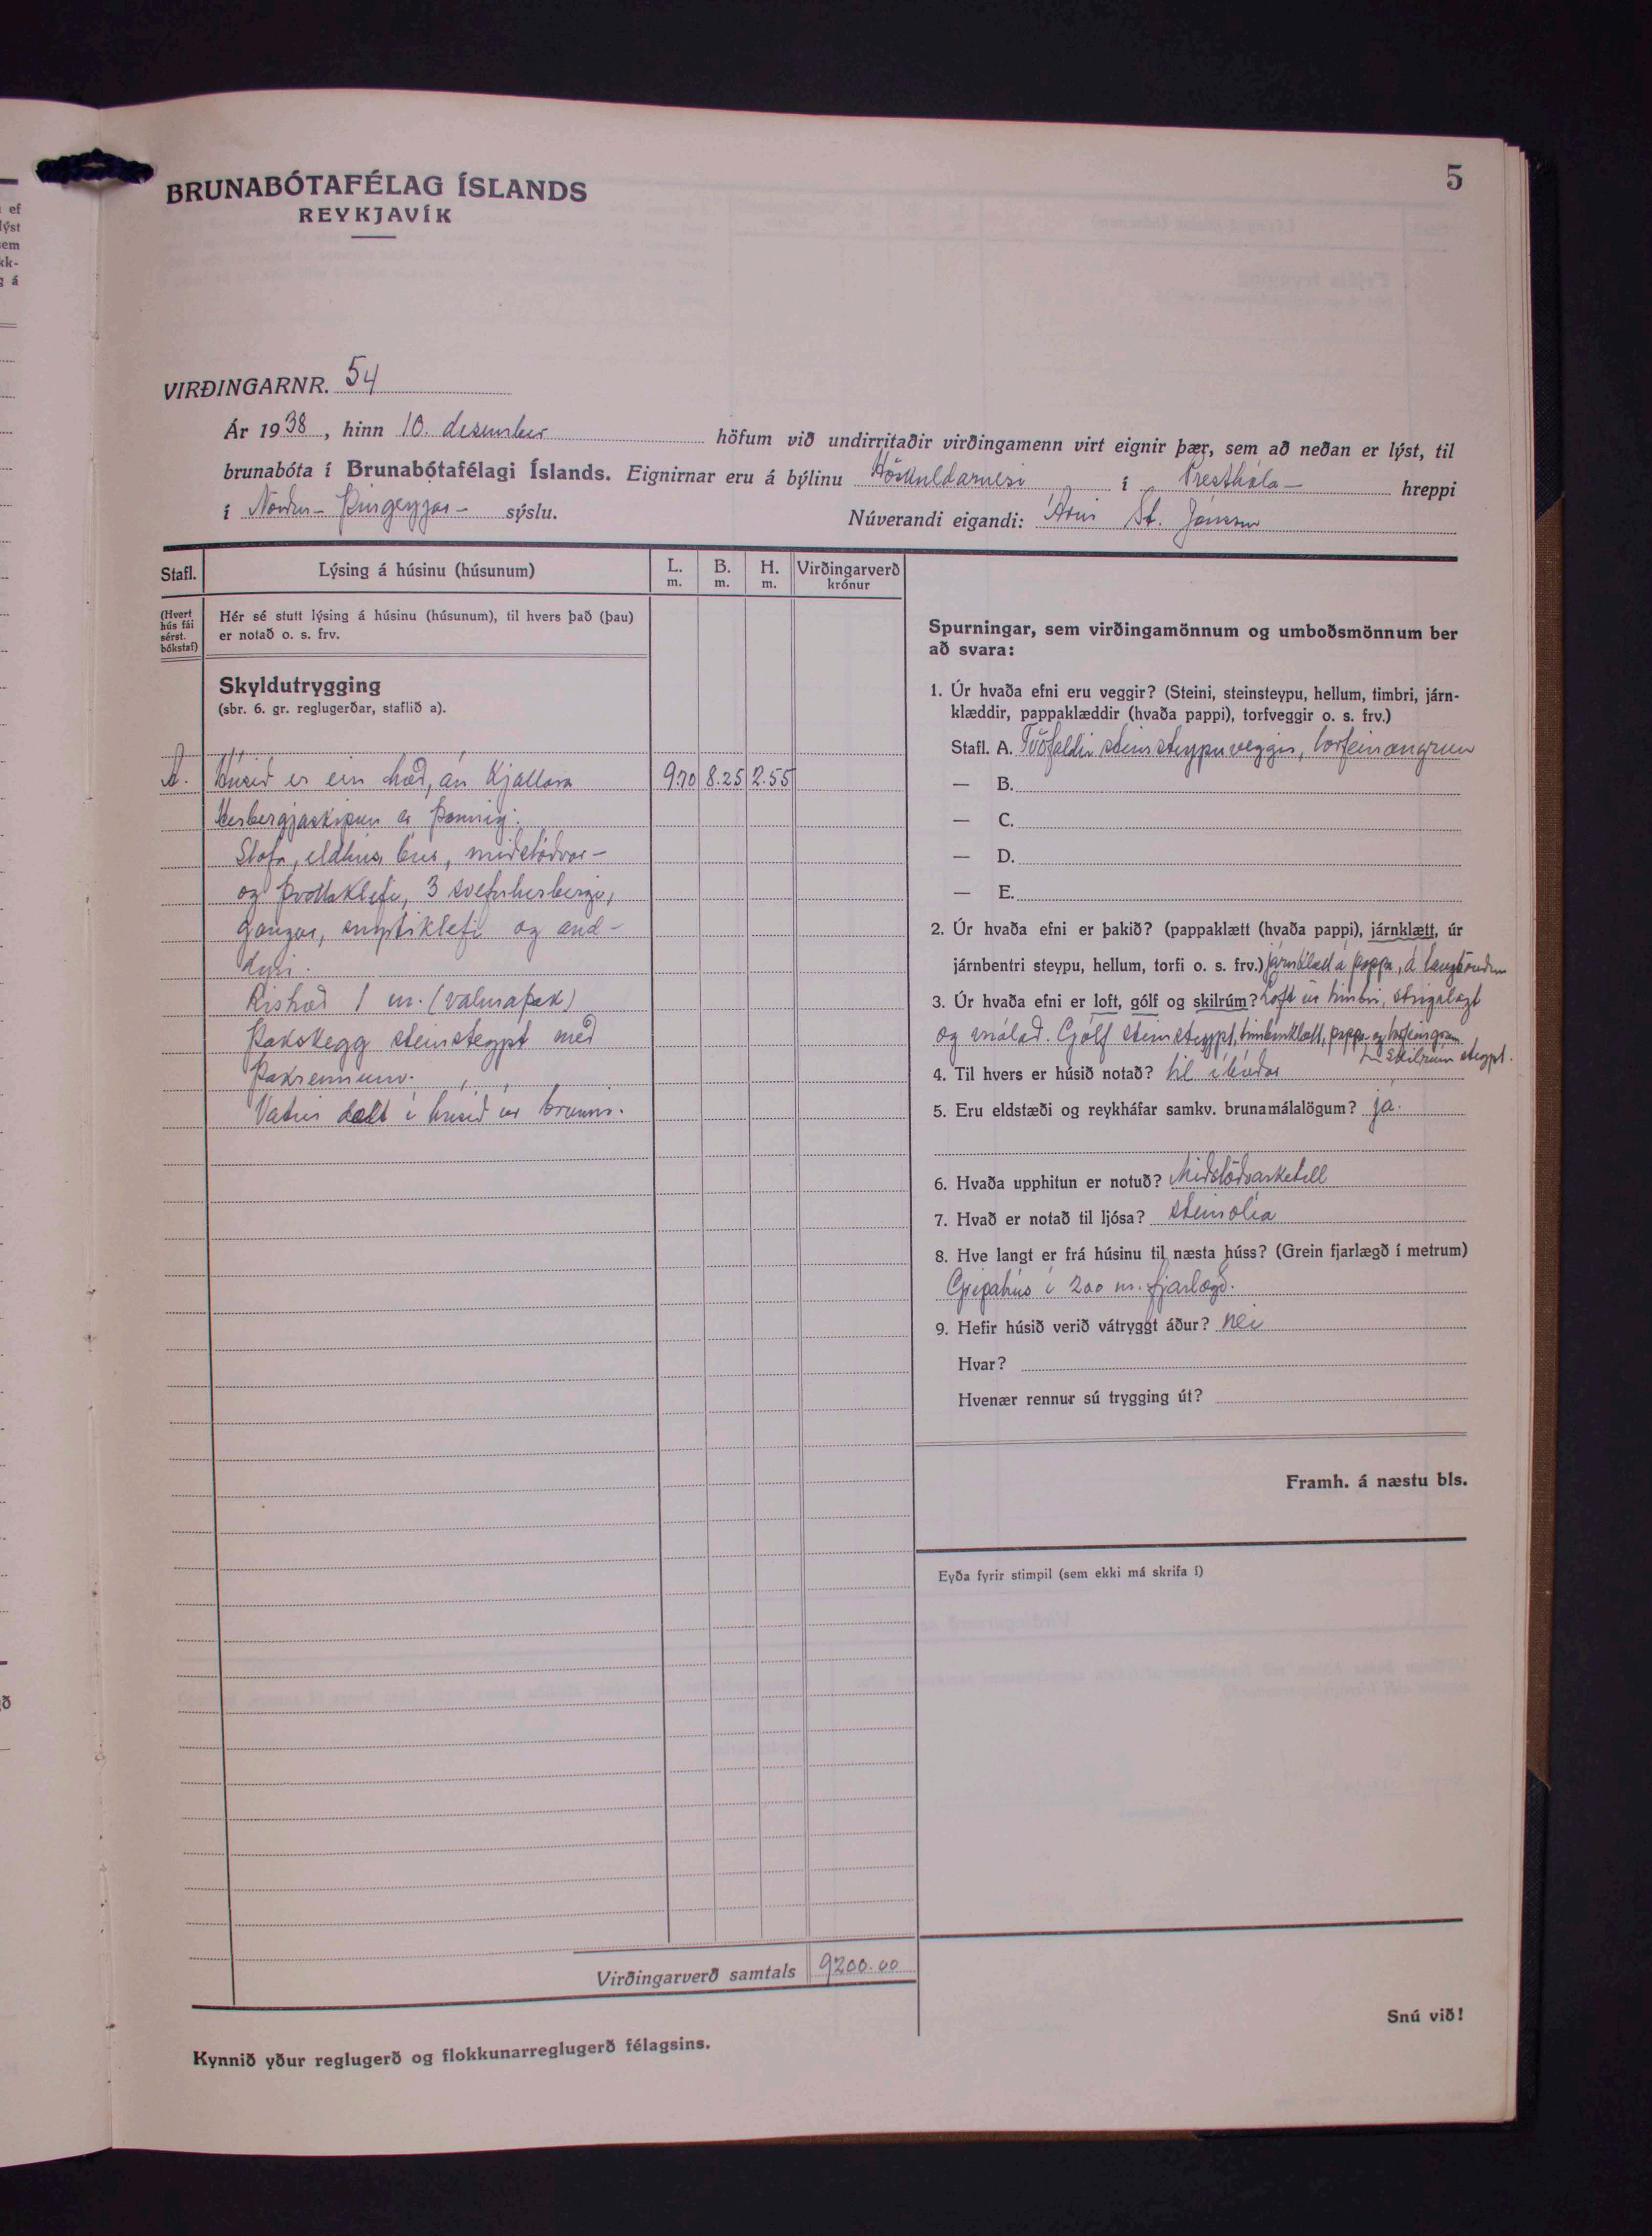 5
BRUNABÓTAFÉLAG ÍSLANDS
REYKJAVÍK
VIRÐINGARNR. 54
Ár 1938, hinn 10. desember höfum við undirritaðir virðingamenn virt eignir þær, sem að neðan er lýst, til
brunabóta í Brunabótafélagi Íslands. Eignirnar eru á býlinu Höskuldarnesi í Presthóla- hreppi
í Norður-Þingeyjar- sýslu. Núverandi eigandi: Árni St. Jónsson
Stafl.
Lýsing á húsinu (húsunum)
L. m.
B. m.
H. m.
Virðingarverð krónur
(Hvert hús fái sérst. bókstaf)
Hér sé stutt lýsing á húsinu (húsunum), til hvers það (þau)
er notað o. s. frv.
Skyldutrygging
(sbr. 6. gr. reglugerðar, staflið a).
A. Húsið er ein hæð, án kjallara 9.70 8.25 2.55
Herbergjaskipun er þannig:
Stofa, eldhús, búr, miðstöðvar-
og þvottaklefi, 3 svefnherbergi,
gangur, snyrtiklefi og and-
dyri.
Rishæð 1 m. (valmaþak)
Þakskegg steinsteypt með
þakrennum.
Vatni dælt í húsið úr brunni.
Virðingarverð samtals 9200.00
Kynnið yður reglugerð og flokkunarreglugerð félagsins.
Spurningar, sem virðingamönnum og umboðsmönnum ber
að svara:
1. Úr hvaða efni eru veggir? (Steini, steinsteypu, hellum, timbri, járn-
klæddir, pappaklæddir (hvaða pappi), torfveggir o. s. frv.)
Stafl. A. Tvöfaldir steinsteypuveggir, torfeinangrun
— B.
— C.
— D.
— E.
2. Úr hvaða efni er þakið? (pappaklætt (hvaða pappi), járnklætt, úr
járnbentri steypu, hellum, torfi o. s. frv.) járnklætt á pappa, á langböndum
3. Úr hvaða efni er loft, gólf og skilrúm? Loft úr timbri, strigalagt
og málað. Gólf steinsteypt, timburklætt, pappa og torfeinangrun
Skilrúm steypt.
4. Til hvers er húsið notað? til íbúðar
5. Eru eldstæði og reykháfar samkv. brunamálalögum? já.
6. Hvaða upphitun er notuð? Miðstöðvarketill
7. Hvað er notað til ljósa? steinolía
8. Hve langt er frá húsinu til næsta húss? (Grein fjarlægð í metrum)
Gripahús í 200 m. fjarlægð.
9. Hefir húsið verið vátryggt áður? nei
Hvar?
Hvenær rennur sú trygging út?
Framh. á næstu bls.
Eyða fyrir stimpil (sem ekki má skrifa í)
Snú við!